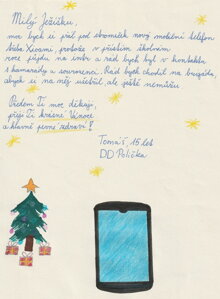 Milý Ježíšku,
moc bych si přál pod stromeček nový mobilní telefon
v příštím školním
roce půjdu na intr a rád bych byl v kontaktu
s kamarády a sourozenci. Rád bych chodil na brigádu,
abych si na něj ušetřil, ale ještě nemůžu
Předem Ti moc děkuji,
přeji Ti krásné Vánoce
a hlavně pevné zdraví!
Tomáš, 15 let
DD Polička